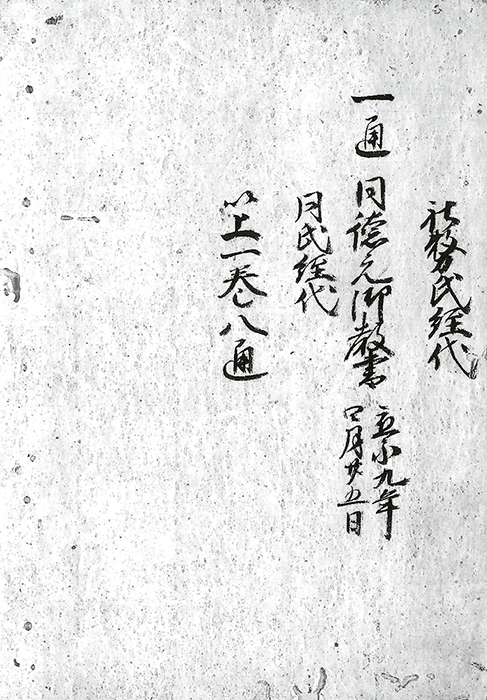 社務氏経代
一通 同徳元御教書 応永九年
四月廿五日
同氏経代
以上一巻八通